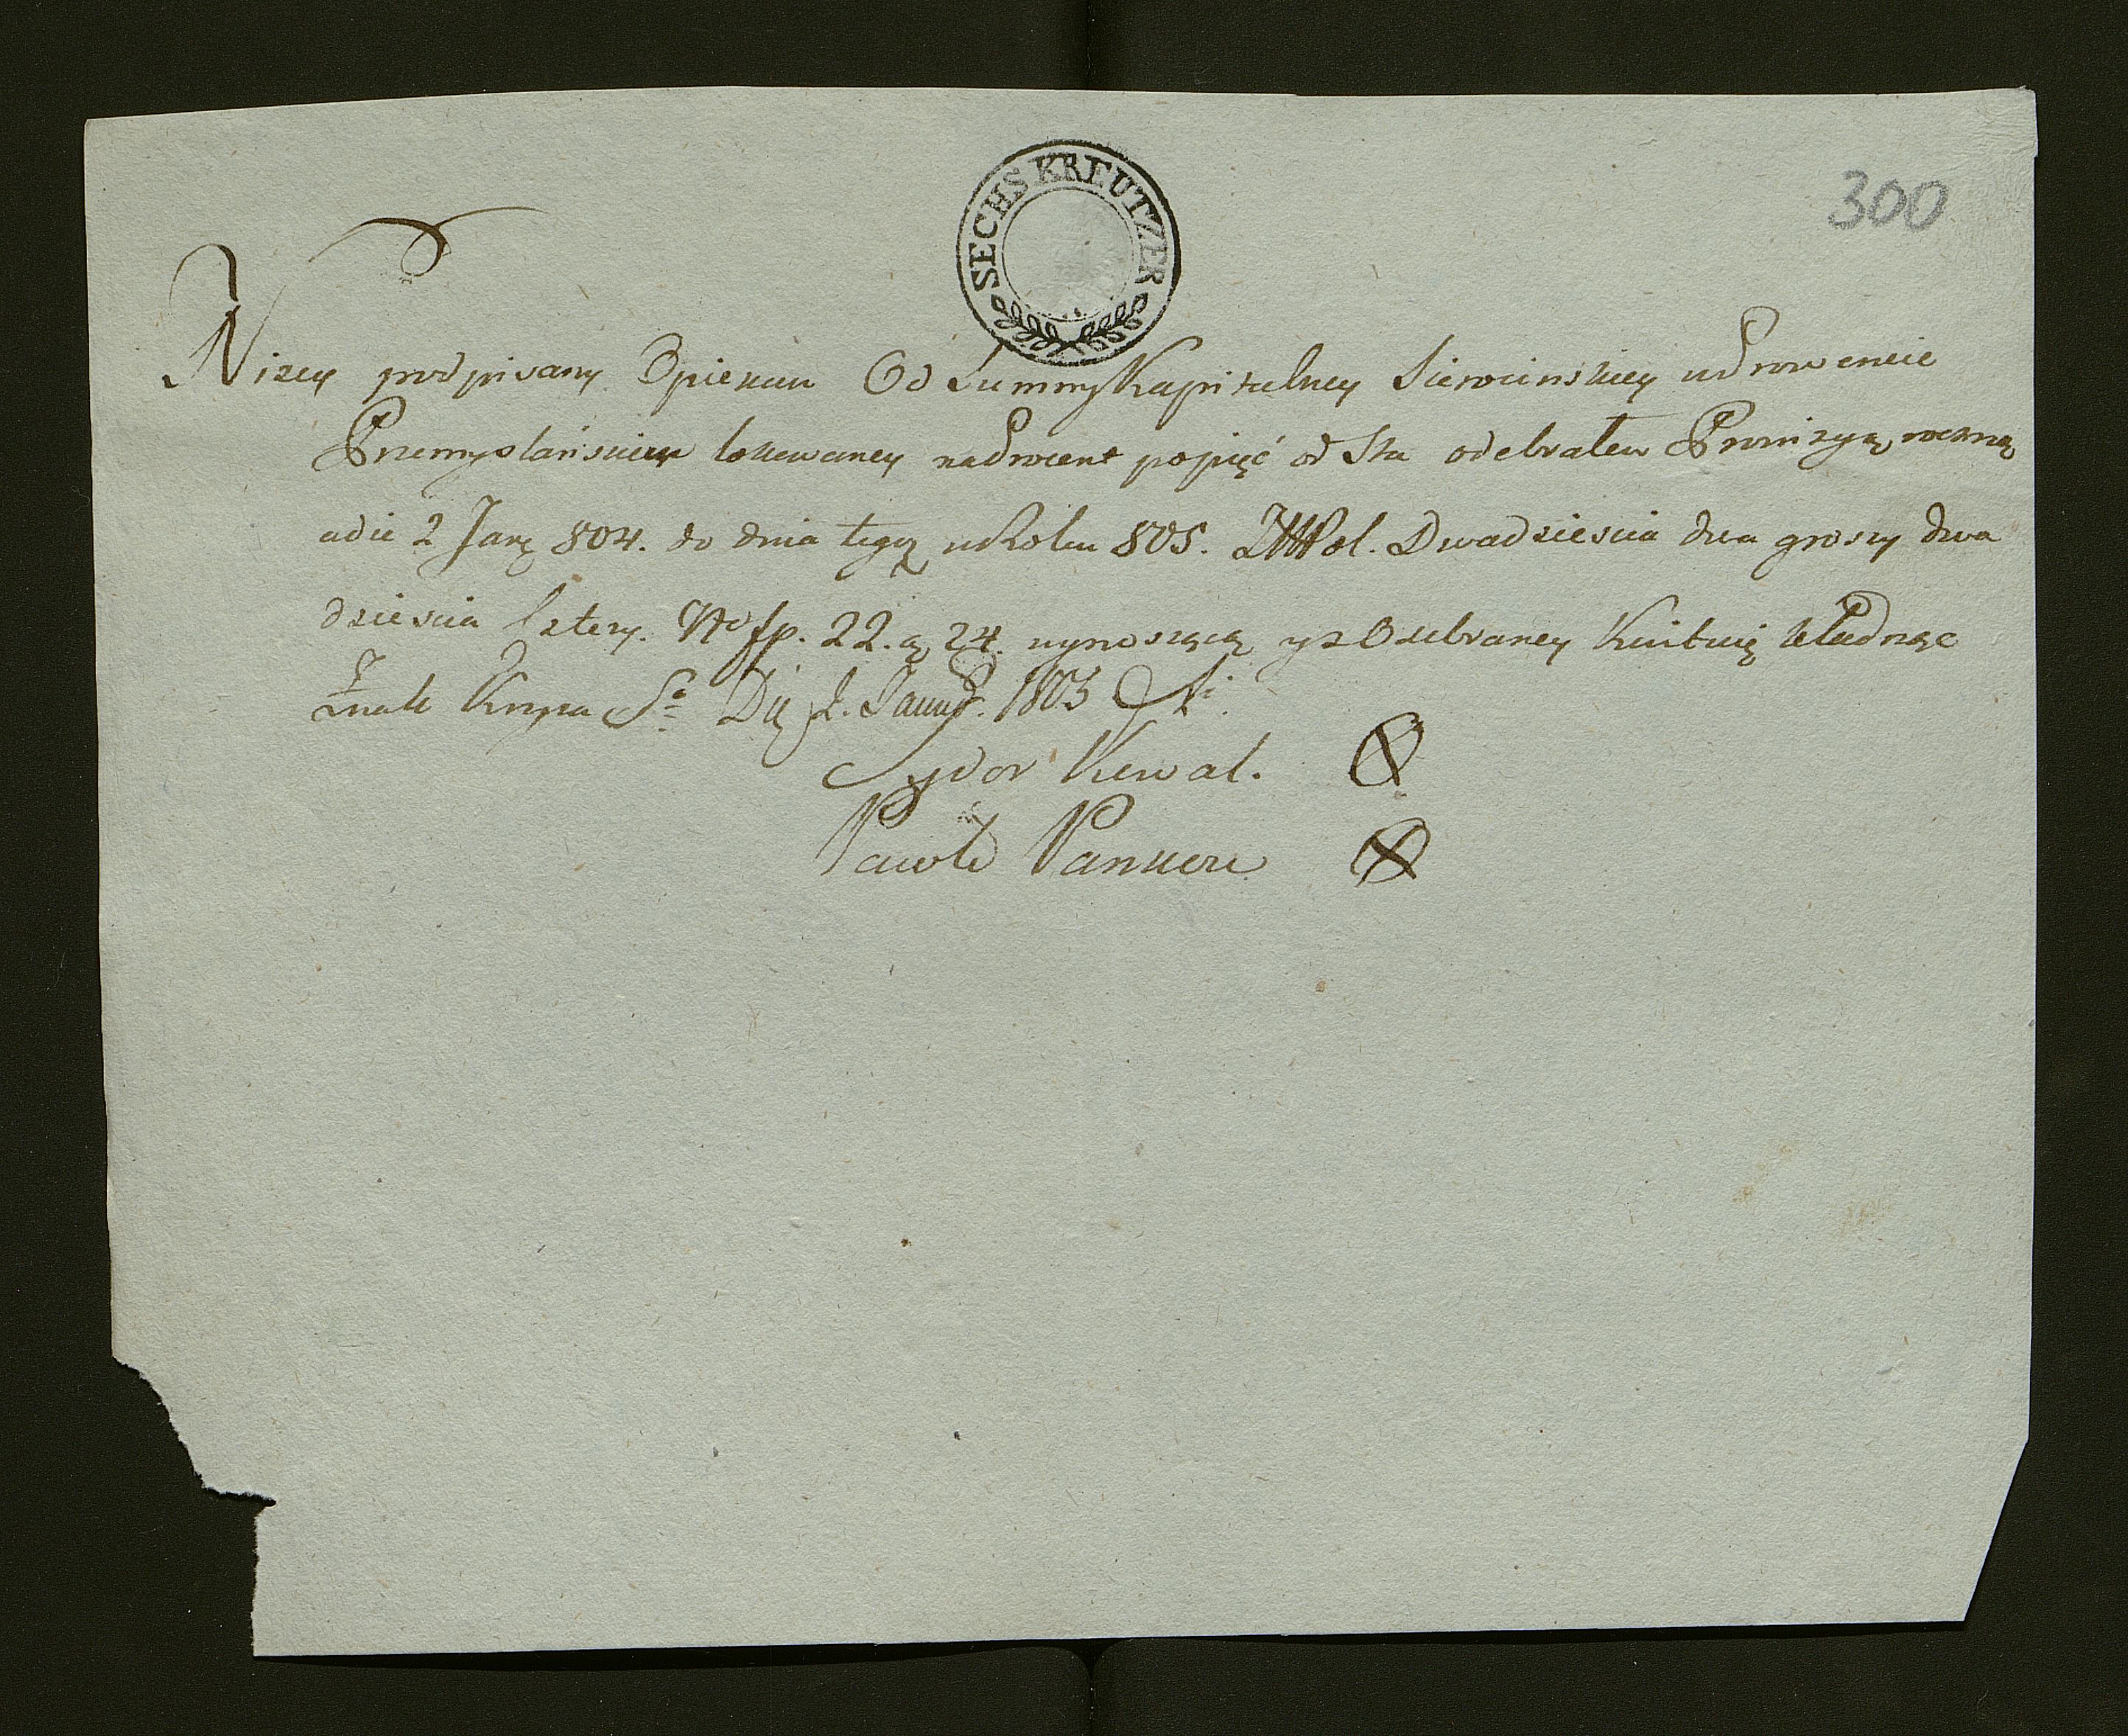 SECHS KREUTZER
300
Nizey podpisany Opiekun Od Summy Kapitalney Sierocinskiey udworencie
Przemyslańskim lokowaney na procent popięć od Sta odebrałem Prowizyą roczną
a die 2 Jany 804. do dnia tegoż u Roku 805. Pol. Dwadziescia dwa groszy dwa
dziescia cztery. No fp. 22. g 24. wynoszącą y z Odebraney kwituię kładnąc
Znak Krzyża S. Die 2. Januar. 1805
Sydor Kowal.
Pawło Pankow